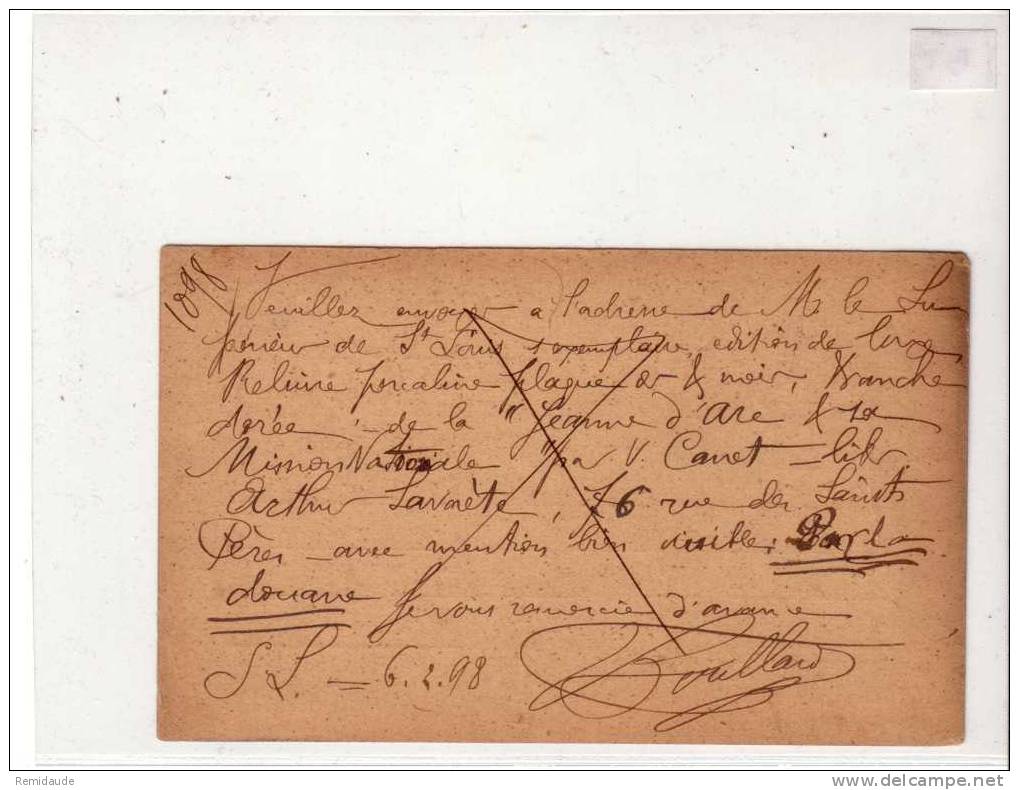 1898
Veuillez envoyer à l'adresse de M. le Su
périeur de St Louis 1 exemplaire, edition de luxe
Reliure percaline plaque or & noir, tranche
dorée, de la "Jeanne d'Arc & sa
Mission Nationale" par V. Canet – libr
Arthur Savaète, 76 rue des Saints
Pères – avec mention bien visible: Par la
douane Je vous remercie d'avance
S L. – 6.2.98 Bouillard
Remidaude
delcampe.net